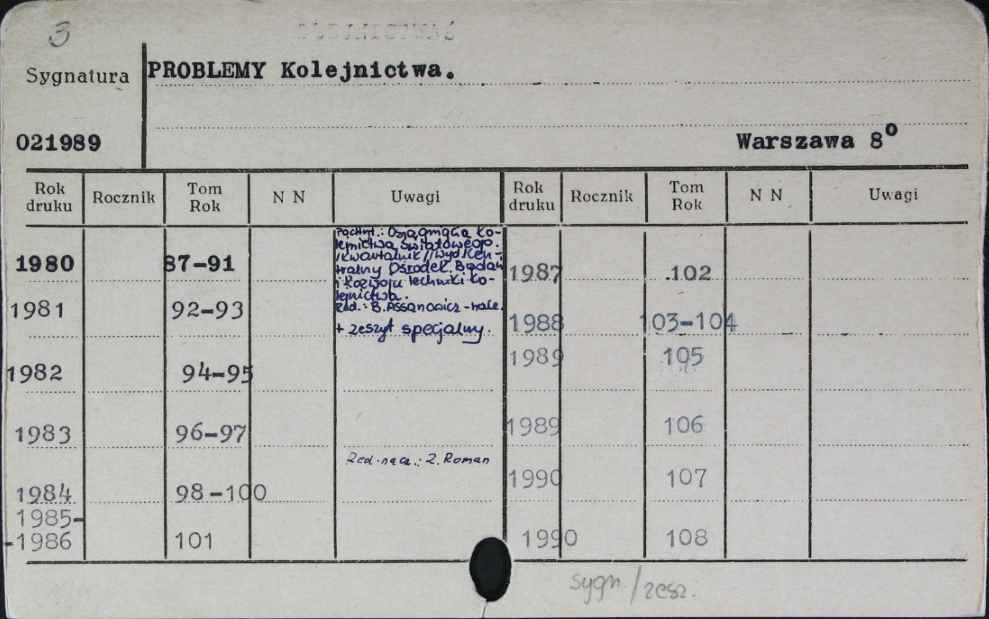 3
Sygnatura PROBLEMY Kolejnictwa.
021989 Warszawa 8°
Rok druku Rocznik Tom Rok N N Uwagi Rok druku Rocznik Tom Rok N N Uwagi
1980 87-91
kolejnictwa światowego.
/kwartalnik/ wyd. Cen-
tralny Ośrodek Badań
i Rozwoju Techniki Ko-
lejnictwa.
+ zeszyt specjalny.
1981 92-93
1982 94-95
1983 96-97
Red. nacz.: Z. Roman
1984 98-100
1985-
-1986 101
1987 102
1988 103-104
1989 105
1989 106
1990 107
1990 108
sygn./zesz.